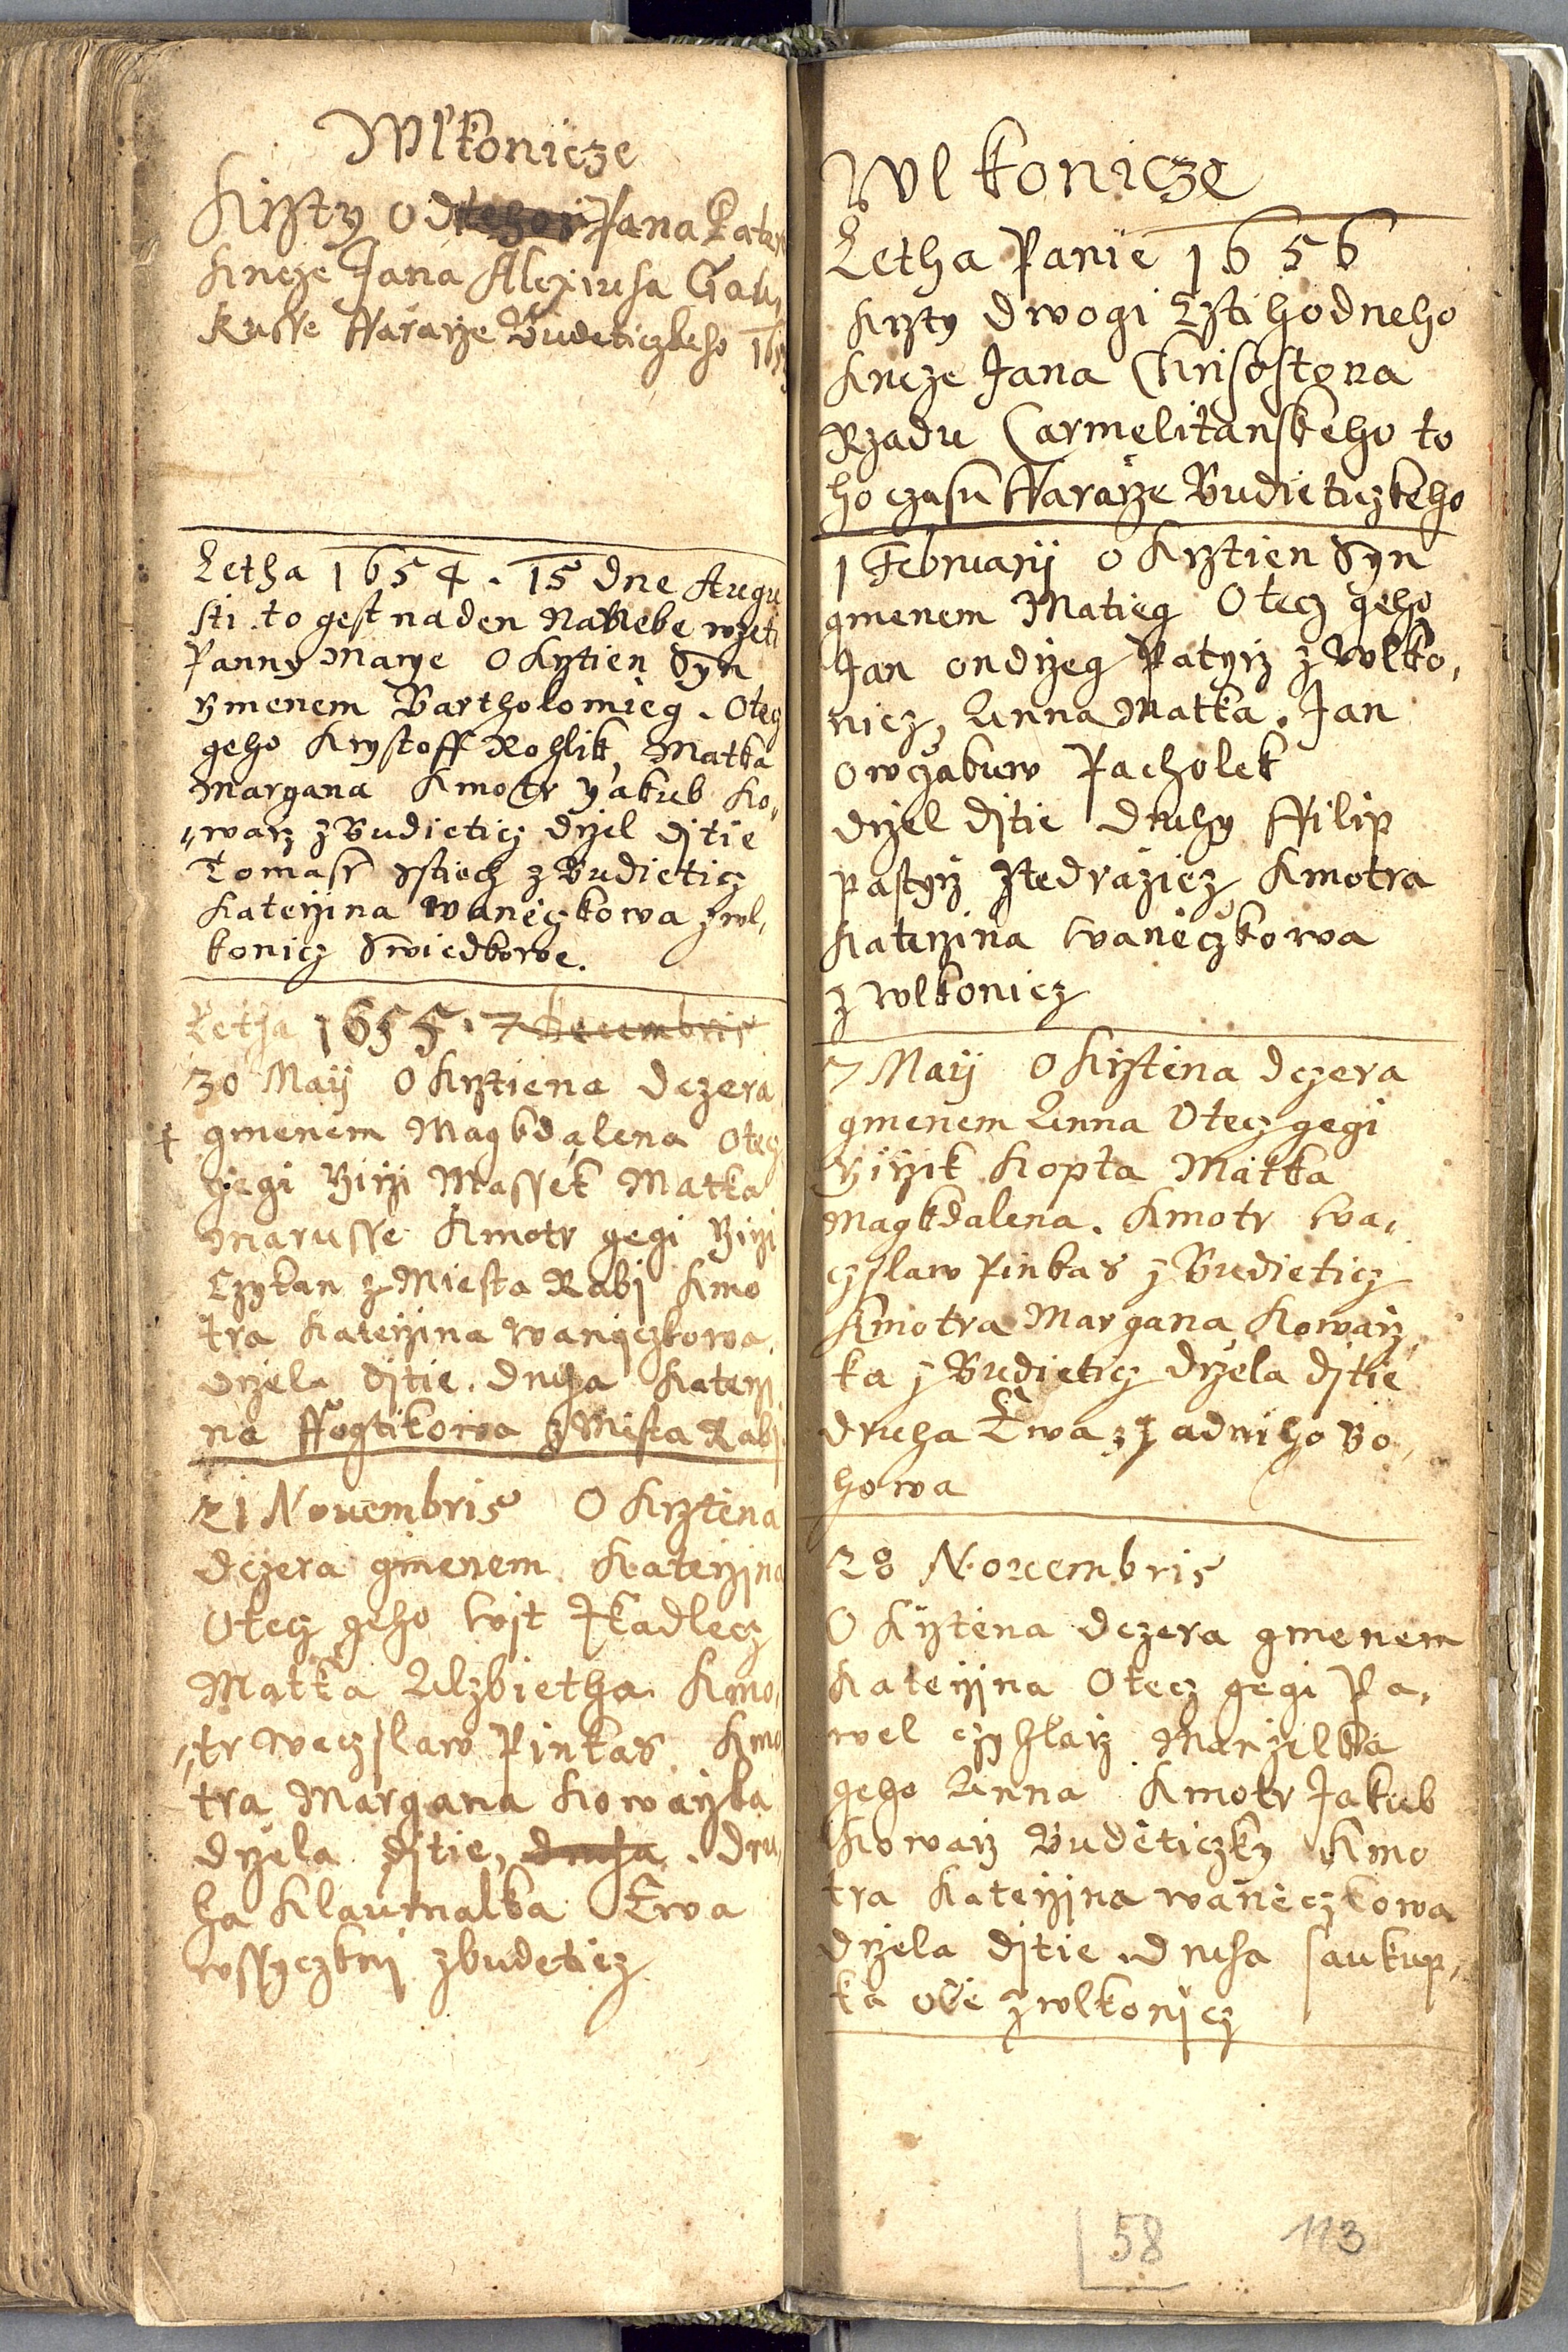 Wlkonicze
Krzty od Pana Pata
Kneze Jana Alexiusa Gab,
kusse Ffararze Budeticzkeho
Letha 1654. 15 dne Augu
sti. to gest na den Na Nebe wzeti
Panny Marye Okrztien Syn
ymenem Bartholomieg. Otecz
geho Krystoff Rohlik, Matka
Margana Kmotr yakub Ko,
„warz z Budieticz drzel djtie
Tomass z Budieticz
Katerzina Waneczkowa z wl,
konicz Swiedkowe.
Letha 1655. 7 Decembris
30 Maij Okrztiena dczera
gmenem Magkdalena Otecz
gegi Yirzi Massek Matka
Marusse Kmotr gegi Yirzi
Czykan z Miesta Rabj Kmo
tra Katerzina Waneczkowa
drzela djtie. druha Katerzi
na Ffogtikowa z Mista Rabj
21 Nouembris Okrztena
dczera gmenem Katerzjna
Otecz geho Wjt Tkadlecz
Matka Alzbietha Kmo,
„tr Waczslaw Pinkas Kmo
tra Margana Kowarzka
drzela djtie, druha. dru
ha Klaumalka Ewa
wssyczknj z budeticz
Wlkonicze
Letha Panie 1656
Krzty dwogi Cztihodneho
Kneze Jana Chrisostona
Rzadu Carmelitanskeho to
ho czasu Ffararze Budieticzkeho
1 Februarij Okrztien Syn
gmenem Matieg Otecz geho
Jan ondrzeg Patyrz z Wlko,
nicz, Anna Matka. Jan
Owczakuw Pacholek
drzel djtie druhy Ffilip
pastyrz z Tedrazicz Kmotra
Katerzina Waneczkowa
z Wlkonicz
7 Maij Okrztena dczera
gmenem Anna Otecz gegi
Yirzik Kopta Matka
Magkdalena. Kmotr Wa,
czslaw Pinkas z Budieticz
Kmotra Margana Kowarz,
ka z Budieticz drzela djtie
druha Ewa z Zadniho Bo,
howa
28 Nouembris
Okrztena dczera gmenem
Katerzjna Otecz gegi Pa,
wel czyhlarz Manzelka
geho Anna Kmotr Jakub
Kowarz Budeticzky Kmo
tra Katerzjna Waneczkowa
drzela djtie. druha saukup,
ka obe z wlkonjcz
58 113